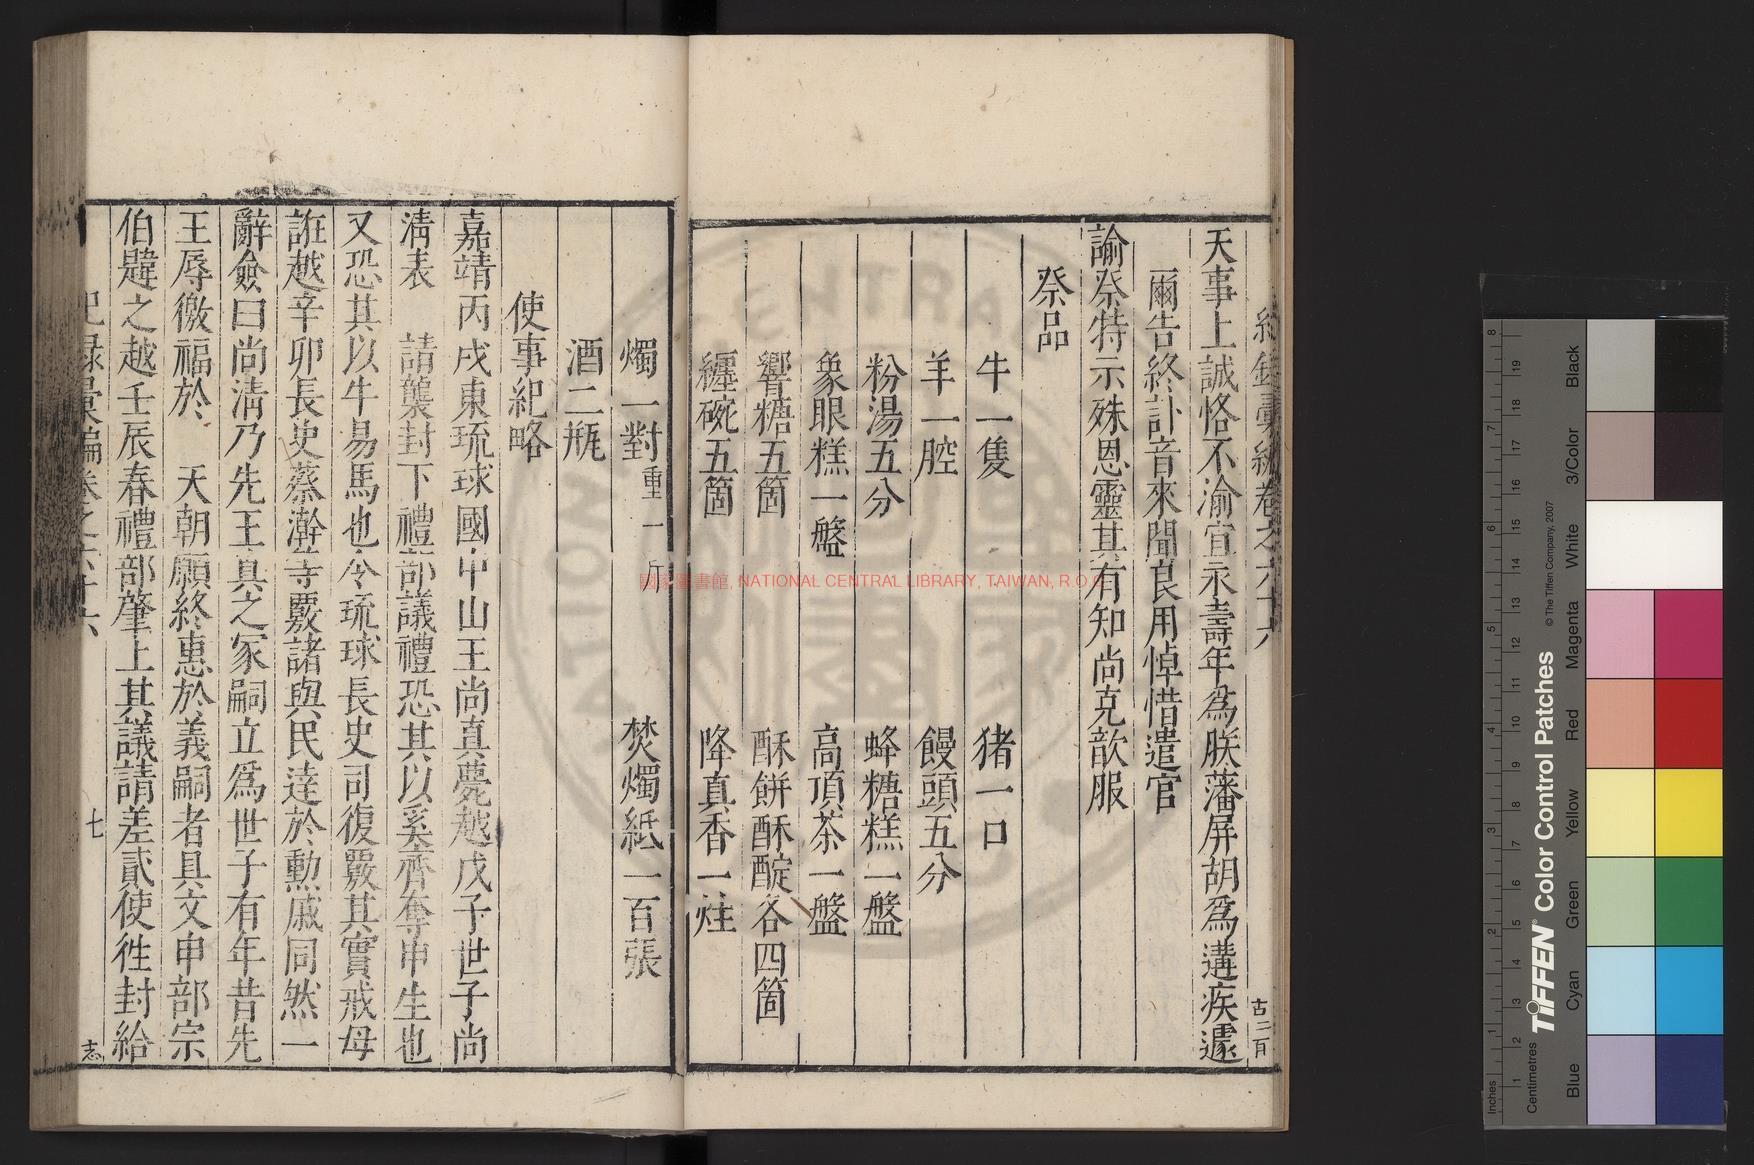 天事上誠恪不渝宜永壽年爲朕藩屏胡爲遘疾遽
爾告終訃音來聞良用悼惜遣官
諭祭特示殊恩靈其有知尚克歆服
祭品
牛一隻 猪一口
羊一腔 饅頭五分
粉湯五分 蜂糖糕一盤
象眼糕一盤 高頂茶一盤
響糖五箇 酥餅酥酡各四箇
纏碗五箇 降真香一炷
燭一對重一斤 焚燭紙一百張
酒二瓶
使事紀略
嘉靖丙戌東琉球國中山王尚真薨越戊子世子尚
清表 請襲封下禮部議禮恐其以奚齊奪申生也
又恐其以牛易馬也令琉球長史司復覈其實戒毋
誑越辛卯長史蔡瀚等覈諸與民達於勳戚同然一
辭僉曰尚清乃先王真之冢嗣立爲世子有年昔先
王辱徼福於 天朝願終惠於義嗣者具文申部宗
伯韙之越壬辰春禮部肇上其議請差貳使徃封給
紀錄彙編卷之六十六
七
志
國家圖書館, NATIONAL CENTRAL LIBRARY, TAIWAN, R.O.C
TIFFEN Color Control Patches
© The Tiffen Company, 2007
Inches
Centimetres
Blue
Cyan
Green
Yellow
Red
Magenta
White
3/Color
Black